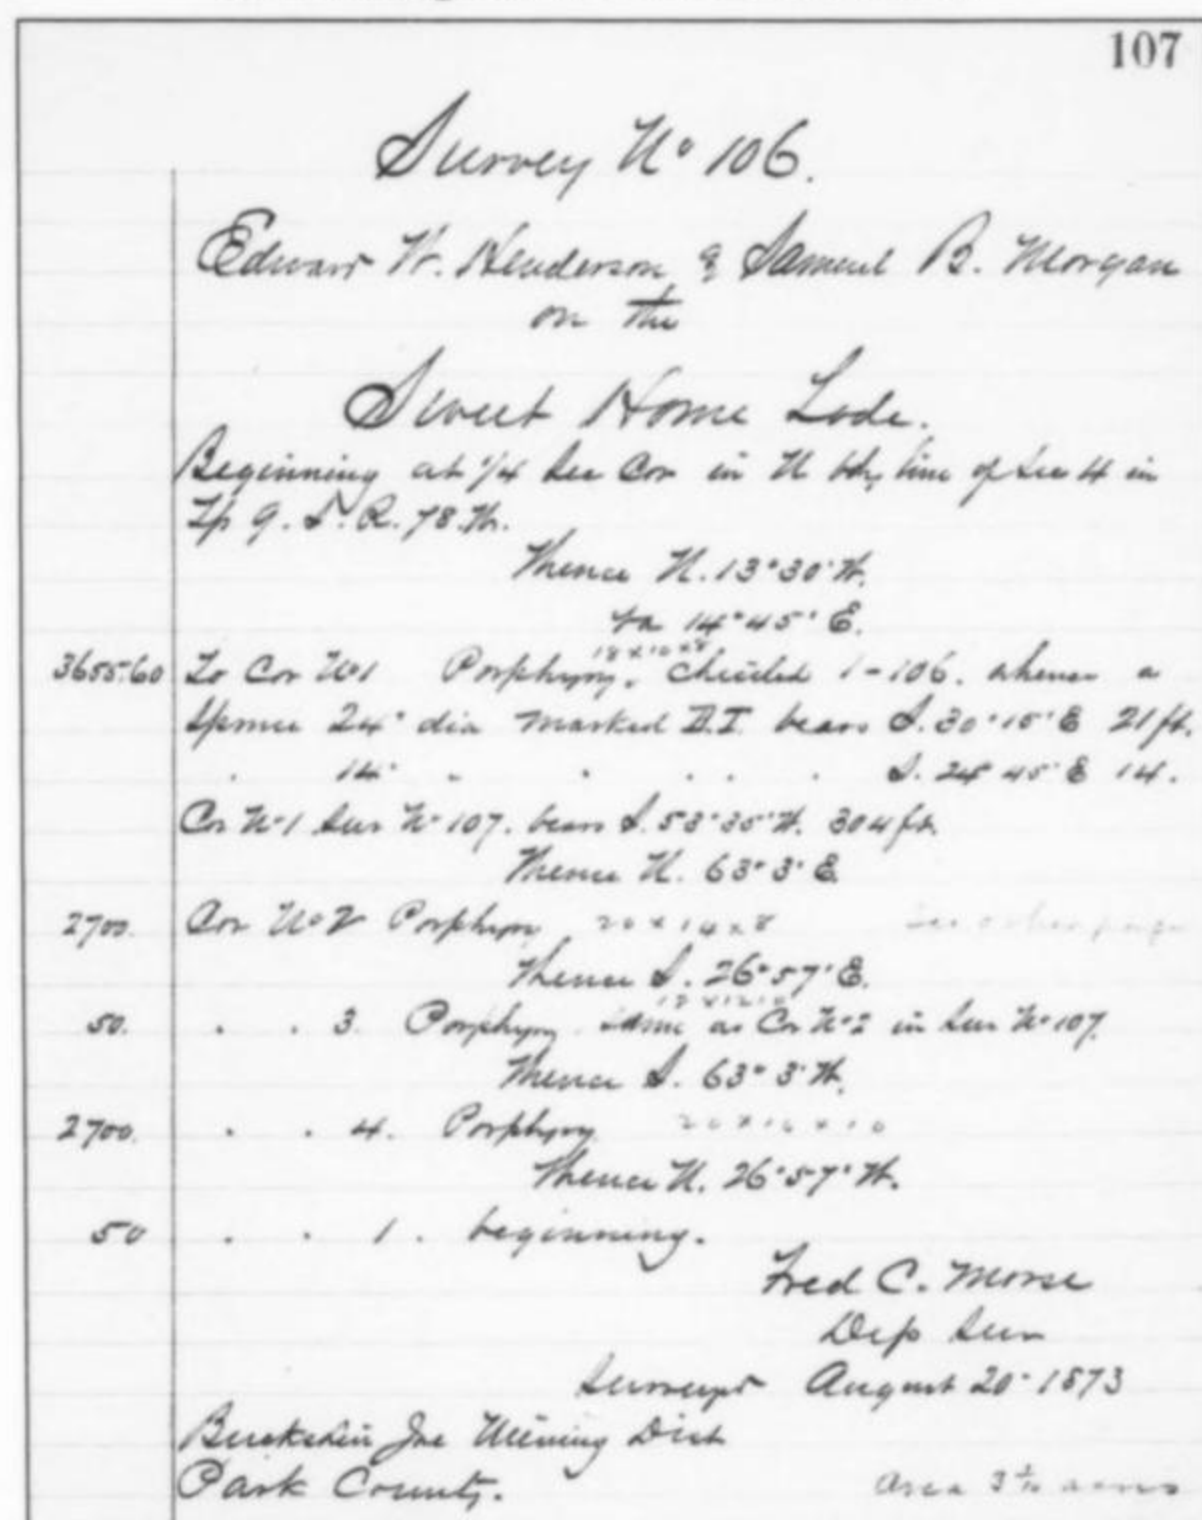 107
Survey No 106.
Edward W. Henderson & Samuel B. Morgan
on the
Sweet Home Lode.
Beginning at 1/4 Sec Cor in N bdy line of Sec 4 in
Tp 9. S. R. 78. W.
Thence N. 13° 30' W.
Va 14° 45' E.
18 x 10 x 8
3655.60 To Cor No 1 Porphyry. Chiseled 1-106. whence a
Spruce 24" dia marked B.T. bears S. 30° 15' E 21 ft.
. 14" " " " " " S. 24° 45' E 14.
Cor No 1 Sur No 107. bears S. 53° 35' W. 304 ft.
Thence N. 63° 3' E.
2700. Cor No 2 Porphyry 20 x 14 x 8 See other page
Thence S. 26° 57' E.
50. . . 3. Porphyry same as Cor No 2 in Sur No 107.
Thence S. 63° 3' W.
2700. . . 4. Porphyry
Thence N. 26° 57' W.
50 . . 1. beginning.
Fred C. Morse
Dep Sur
Surveyed August 20" 1873
Buckskin Joe Mining Dist
Park County.
Area 3 1/10 acres